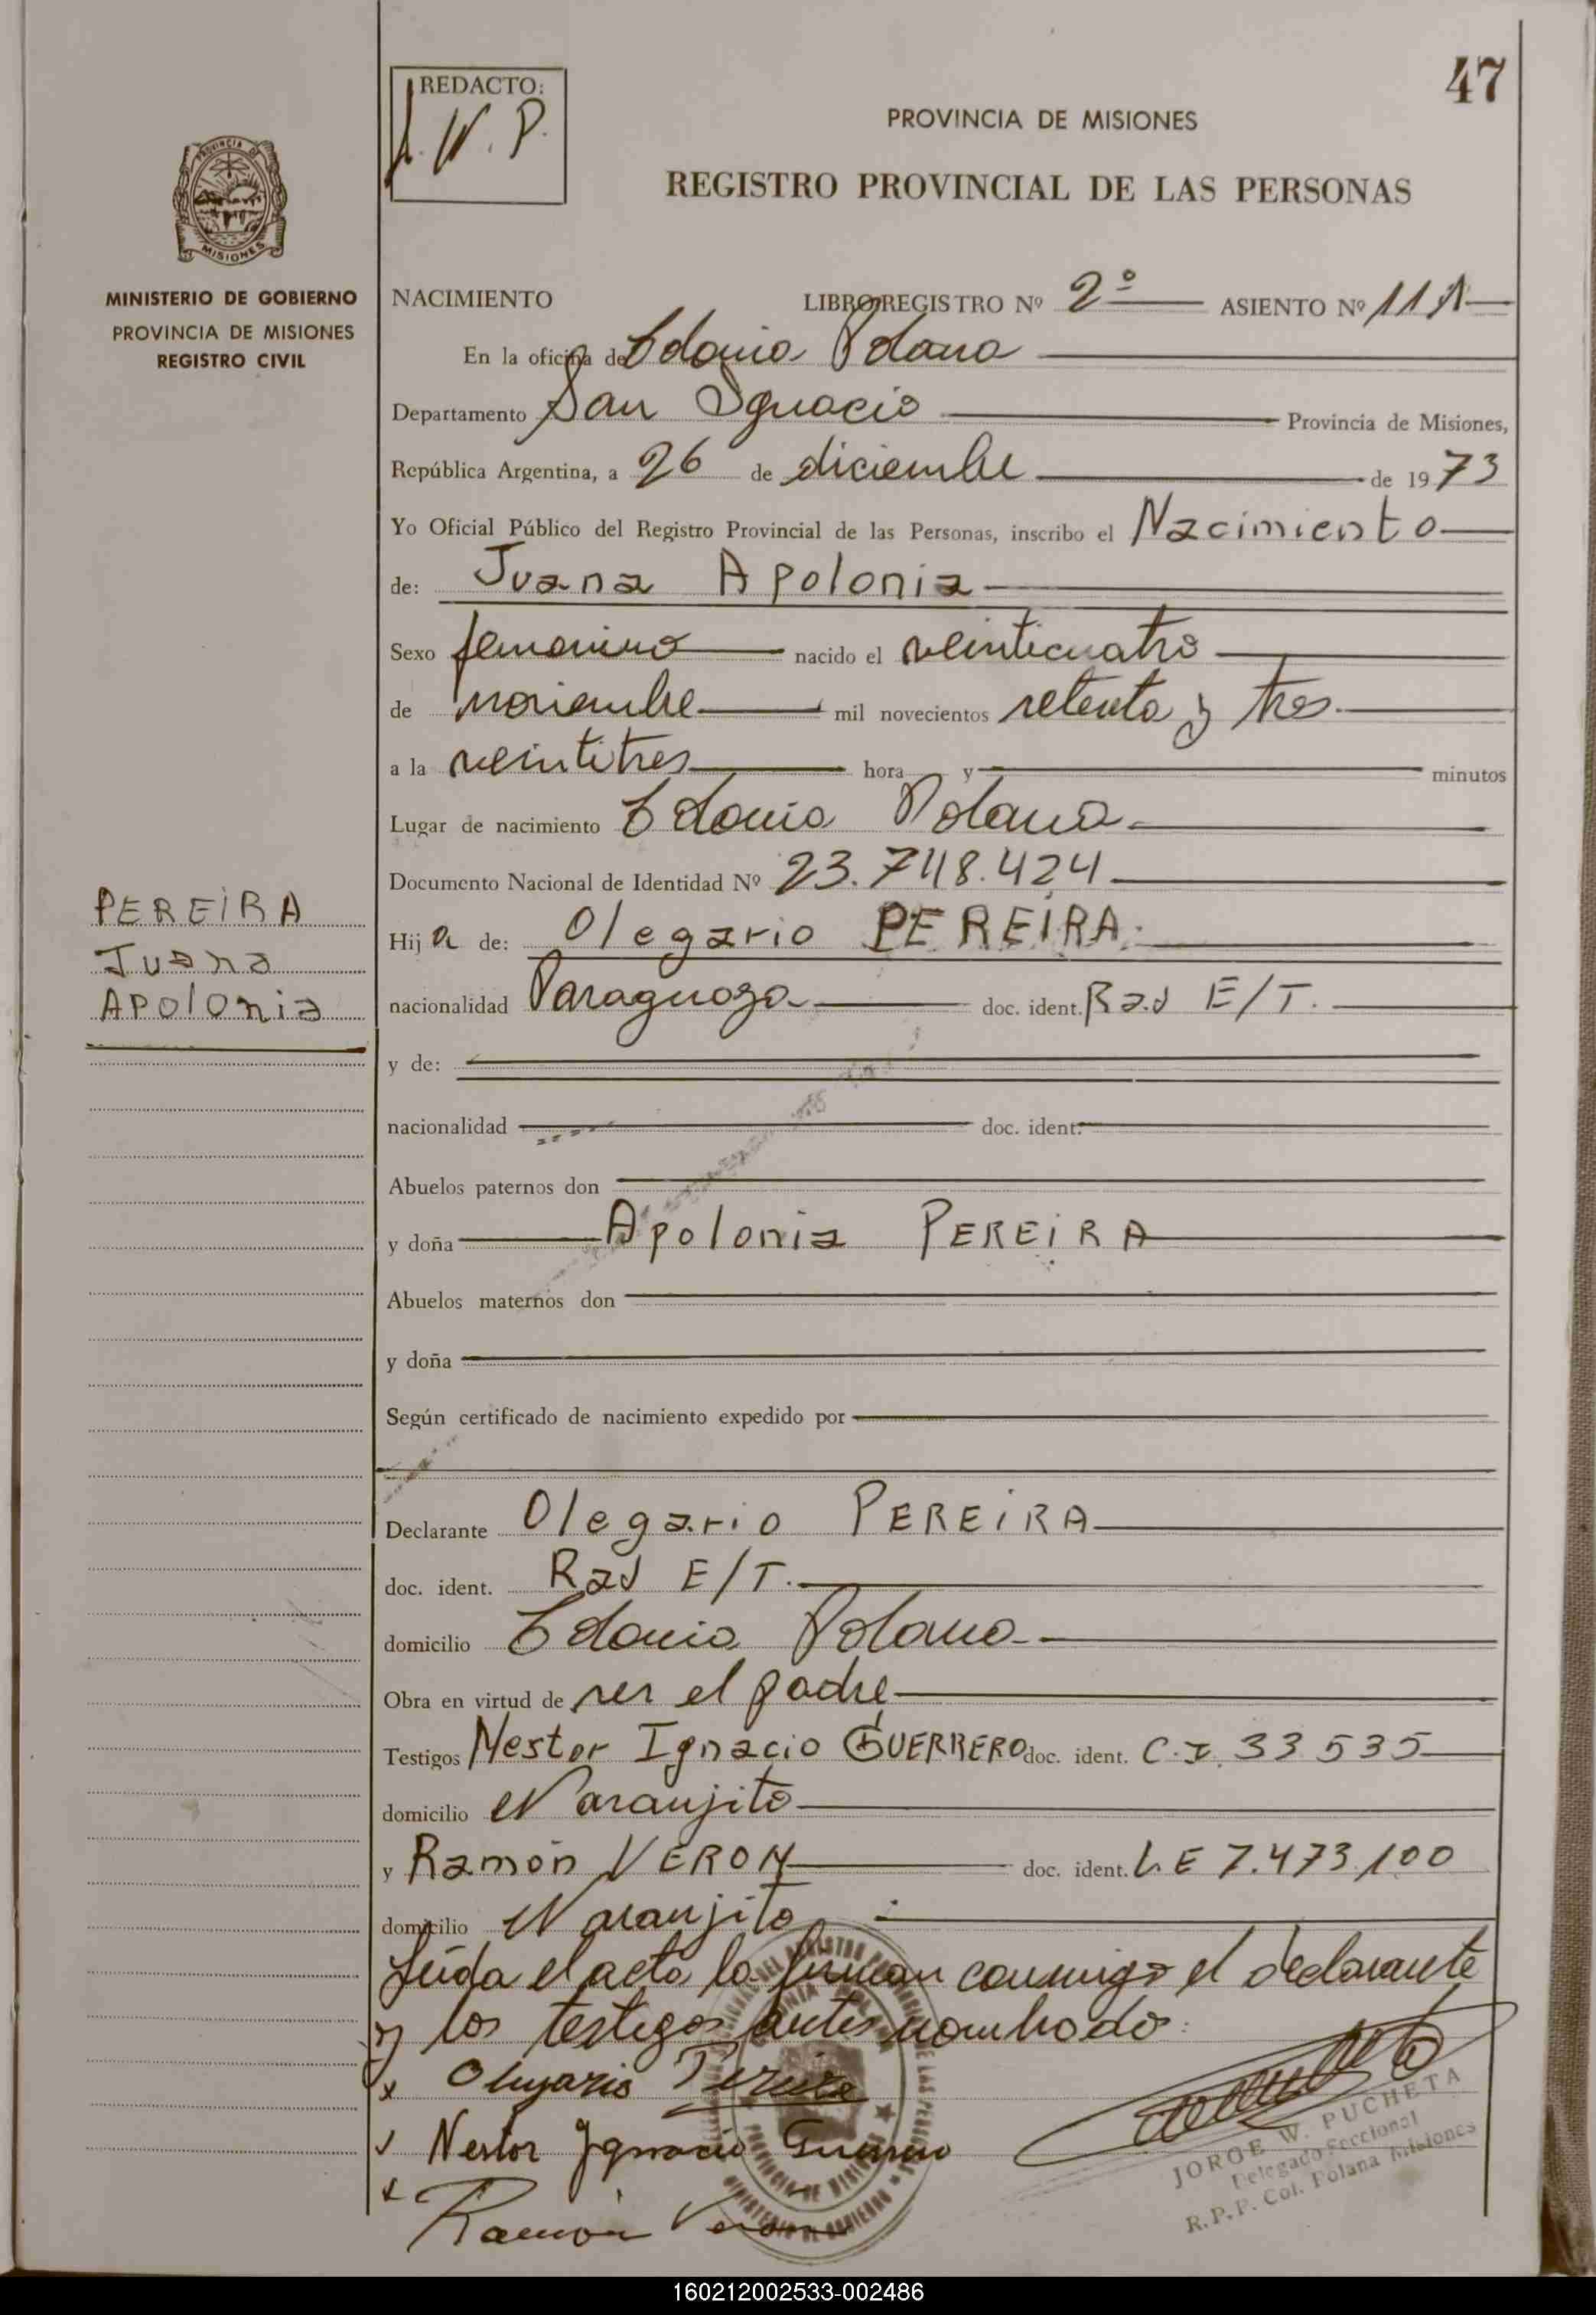 47
REDACTO:
J. W. P.
PROVINCIA DE MISIONES
REGISTRO PROVINCIAL DE LAS PERSONAS
PROVINCIA DE
MISIONES
MINISTERIO DE GOBIERNO
PROVINCIA DE MISIONES
REGISTRO CIVIL
NACIMIENTO LIBRO REGISTRO Nº 2º ASIENTO Nº 111
En la oficina de Colonia Polana
Departamento San Ignacio Provincia de Misiones,
República Argentina, a 26 de diciembre de 1973
Yo Oficial Público del Registro Provincial de las Personas, inscribo el Nacimiento
de: Juana Apolonia
Sexo femenino nacido el veinticuatro
de noviembre mil novecientos setenta y tres
a la veintitres hora y minutos
Lugar de nacimiento Colonia Polana
Documento Nacional de Identidad Nº 23.748.424
PEREIRA
Juana
Apolonia
Hija de: Olegario PEREIRA
nacionalidad Paraguaya doc. ident. Rad E/T.
y de:
nacionalidad doc. ident.
Abuelos paternos don
y doña Apolonia PEREIRA
Abuelos maternos don
y doña
Según certificado de nacimiento expedido por
Declarante Olegario PEREIRA
doc. ident. Rad E/T.
domicilio Colonia Polana
Obra en virtud de ser el padre
Testigos Nestor Ignacio GUERRERO doc. ident. C.I. 33535
domicilio Naranjito
y Ramón VERON doc. ident. L.E 7.473.100
domicilio Naranjito
Leída el acta la firman conmigo el declarante
y los testigos antes nombrado.
Olegario Pereira
Nestor Ignacio Guerrero
Ramón Veron
JORGE W. PUCHETA
Delegado Seccional
R.P.P. Col. Polana Misiones
160212002533-002486